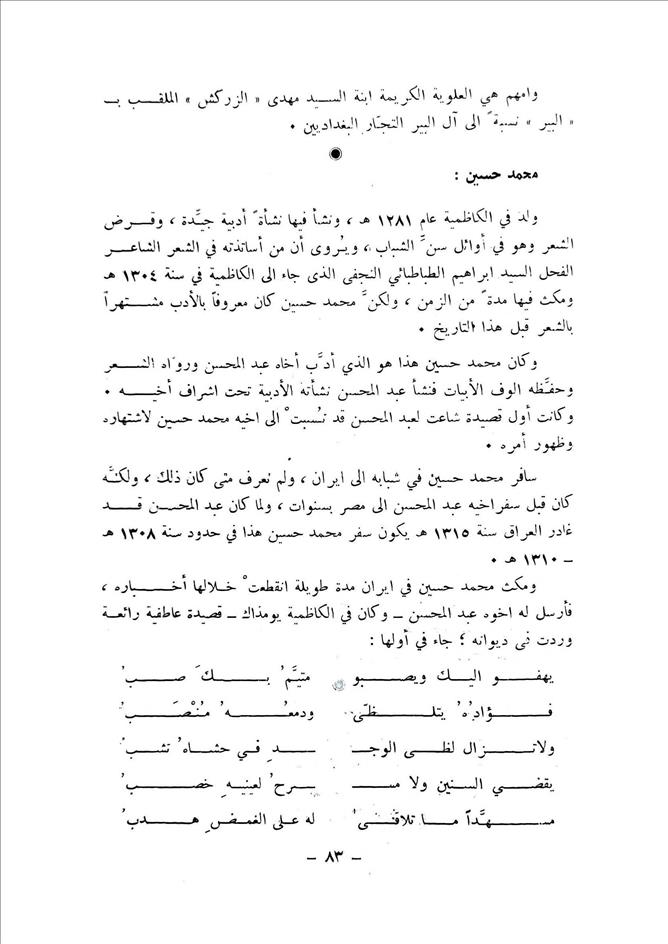 وامهم هي العلوية الكريمة ابنة السيد مهدى « الزركش » الملقب بـ
« البير » نسبةً الى آل البير التجّار البغداديين ٠
محمد حسين :
ولد في الكاظمية عام ١٢٨١ هـ ، ونشأ فيها نشأةً أدبية جيِّدة ، وقرض
الشعر وهو في أوائل سنِّ الشباب ، ويُروى أن من أساتذته في الشعر الشاعر
الفحل السيد ابراهيم الطباطبائي النجفى الذى جاء الى الكاظمية في سنة ١٣٠٤ هـ
ومكث فيها مدةً من الزمن ، ولكنَّ محمد حسين كان معروفاً بالأدب مشتهراً
بالشعر قبل هذا التاريخ ٠
وكان محمد حسين هذا هو الذي أدَّب أخاه عبد المحسن وروّاه الشعر
وحفَّظه الوف الأبيات فنشأ عبد المحسن نشأته الأدبية تحت اشراف أخيه ٠
وكانت أول قصيدة شاعت لعبد المحسن قد نُسبتْ الى اخيه محمد حسين لاشتهاره
وظهور أمره ٠
سافر محمد حسين في شبابه الى ايران ، ولم نعرف متى كان ذلك ، ولكنَّه
كان قبل سفر اخيه عبد المحسن الى مصر بسنوات ، ولما كان عبد المحسن قد
غادر العراق سنة ١٣١٥ هـ يكون سفر محمد حسين هذا في حدود سنة ١٣٠٨ هـ
– ١٣١٠ هـ ٠
ومكث محمد حسين في ايران مدة طويلة انقطعتْ خلالها أخباره ،
فأرسل له اخوه عبد المحسن – وكان في الكاظمية يومذاك – قصيدة عاطفية رائعة
وردت في ديوانه ؛ جاء في أولها :
يهفو اليك ويصبو متيَّمُ بكَ صبُ
فؤادُهُ يتلظّى ودمعُهُ مُنْصَبُ
ولاتزال لظى الوجـ ـدِ في حشاهُ تشبُ
يقضي السنين ولا مسـ ـرحُ لعينيه خصبُ
مسهَّداً ما تلاقى له على الغمضِ هدبُ
– ٨٣ –